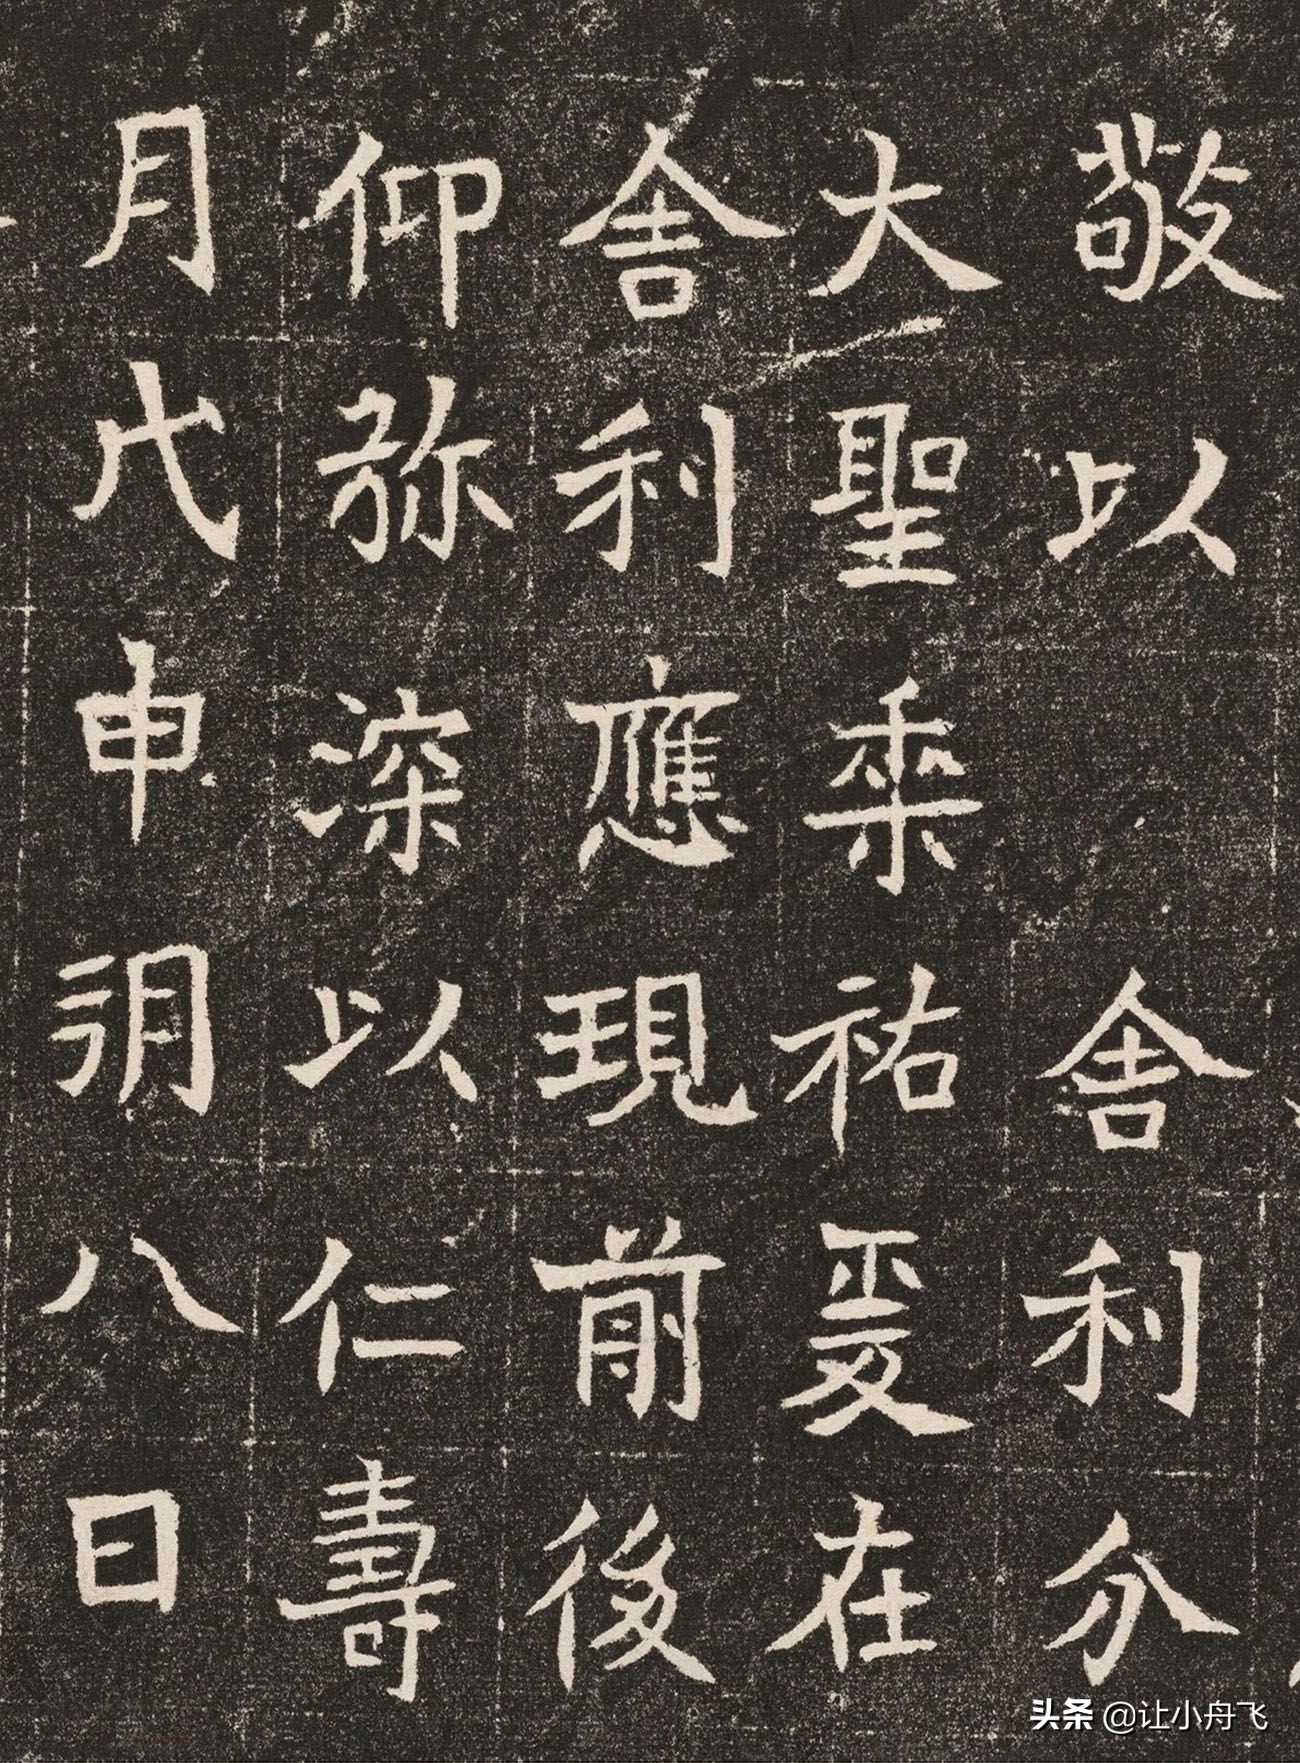 敬以 舍利分
大聖乘祐爰在
舍利應現前後
仰弥深以仁壽
月戊申朔八日
头条 @让小舟飞